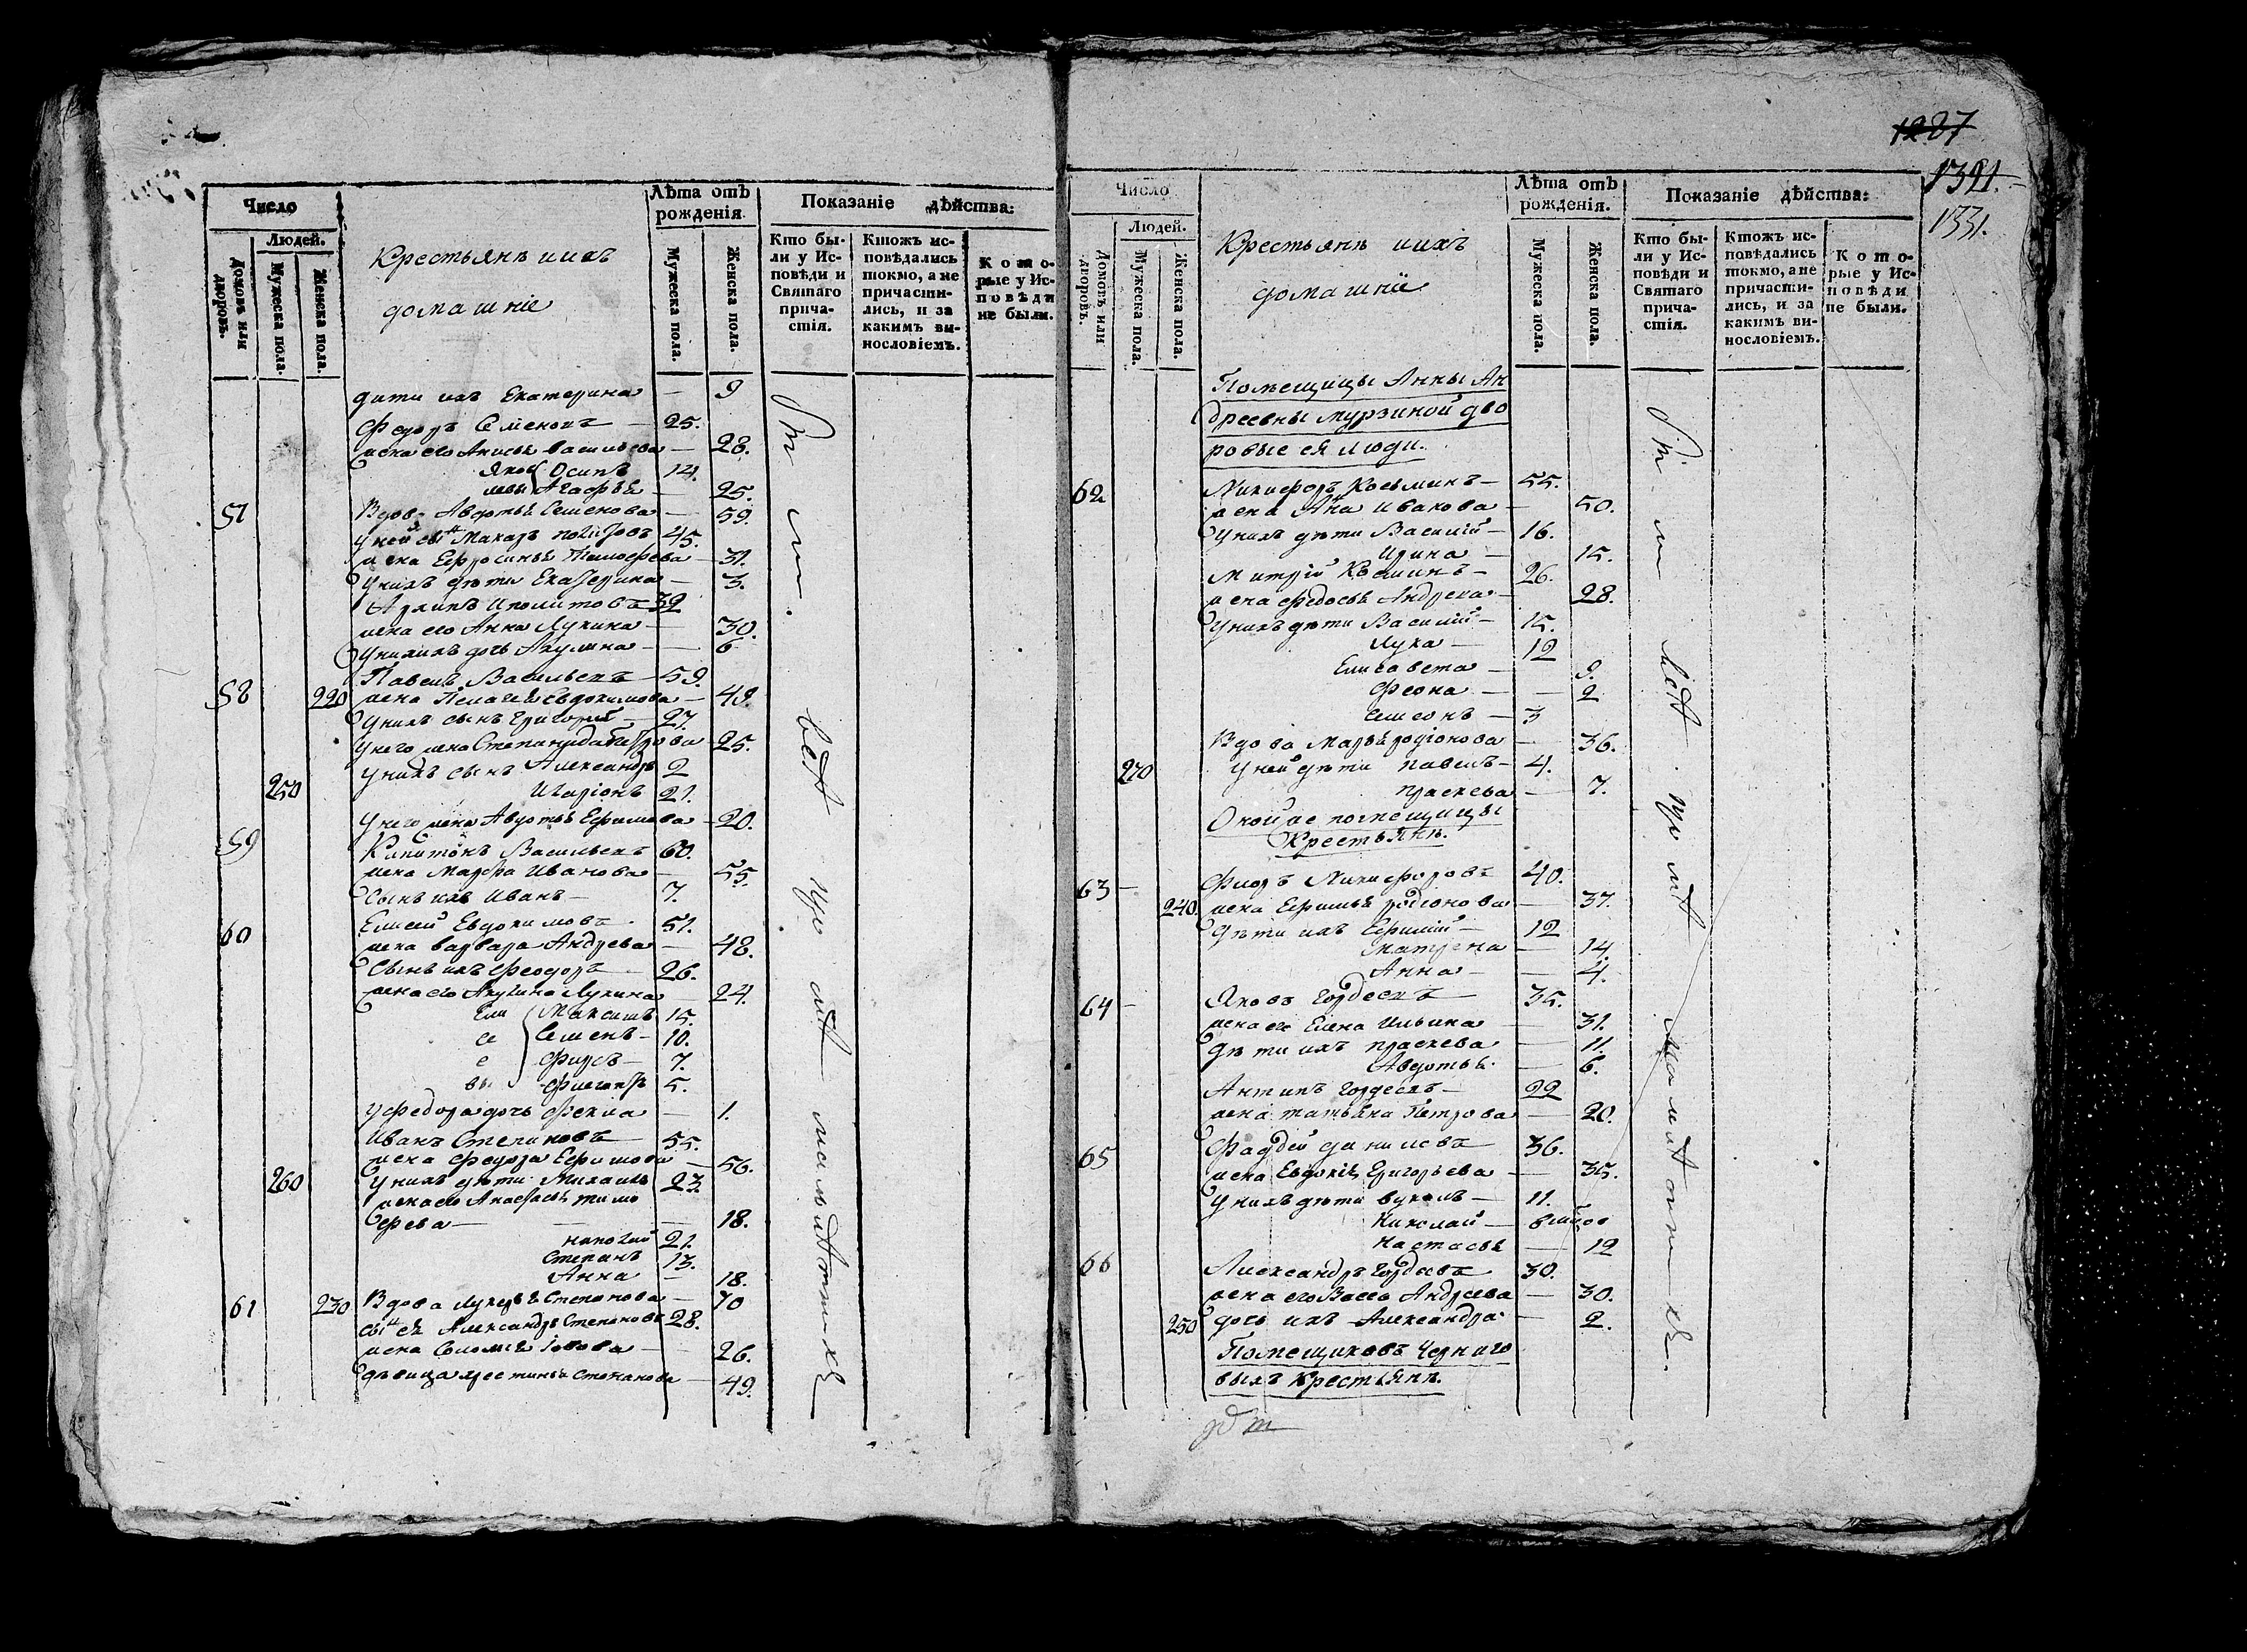 Число
Людей.
Домовъ или дворовъ.
Мужеска пола.
Женска пола.
Крестьянѣ ихъ
домашніе
Лѣта отъ
рожденія
Мужеска пола.
Женска пола.
Показаніе дѣйства:
Кто бы-
ли у Ис-
повѣди и
Святаго
прича-
стія.
Ктожъ ис-
повѣдались
токмо, а не
причасти-
лись, и за
какимъ ви-
нословіемъ.
Кото-
рые у Ис-
повѣди
не были.
дѣти ихъ Екатерина — 9
Федоръ Семеновъ — 25.
жена его Анисья Васильева — 28.
Яков Осипъ 14.
левы Агафья — 25.
57 Вдова Авдотья Семенова — 59.
у ней сынъ Макаръ 45.
жена Ефросинья Тимофева — 31.
у нихъ дѣти Екатерина — 3.
Архипъ Иполитовъ 32
жена его Анна Лукина — 30.
у нихъ дочь Акулина — 6
58 Павелъ Васильевъ — 59.
220 жена Пелагея Евдокимова — 49.
у нихъ сынъ Григорий — 27.
у него жена Степанида Петрова 25.
у нихъ сынъ Александръ 2
250 Иларіонъ 21.
у него жена Авдотья Ефимова — 20.
59 Капитонъ Васильевъ 60.
жена Марфа Иванова — 55.
сынъ ихъ Иванъ — 7.
60 Елисей Евдокимовъ 51.
жена Варвара Андрева — 48.
сынъ ихъ Феодоръ — 26.
жена его Акулина Лукина — 24.
Ели Максимъ 15.
се Семенъ — 10.
е Фирсъ — 7.
вы 5.
у Федора дочь Фекла — 1.
Иванъ Степановъ 55.
жена Федора Ефимова — 56.
260 у нихъ дѣти Михаилъ 23.
жена его Анастасья Тимо
фева — 18.
21.
Степанъ 13.
Анна — 18.
61 230 Вдова Лукерья Степанова — 70
сынъ ея Александръ Степановъ 28.
жена Соломея — 26.
дѣвица Степанова — 49.
1227
1391.
1331.
Число
Людей.
Домовъ или дворовъ.
Мужеска пола.
Женска пола.
Крестьянѣ ихъ
домашніе
Лѣта отъ
рожденія.
Мужеска пола.
Женска пола.
Показаніе дѣйства:
Кто бы-
ли у Ис-
повѣди и
Святаго
прича-
стія.
Ктожъ ис-
повѣдались
токмо, а не
причасти-
лись, и за
какимъ ви-
нословіемъ.
Кото-
рые у Ис-
повѣди
не были.
Помещицы Анны Ан
дреевны Мурзиной дво
ровые ея люди.
62 Никифоръ Косьминъ — 55.
жена Анна Иванова — 50.
у нихъ дѣти Василій — 16.
Ирина — 15.
Митрій Косминъ — 26.
жена Федосья Андреева — 28.
у нихъ дѣти Василій — 15.
Лука — 12
Елисавета — 9.
Феона — 2
Семіонъ — 3
Вдова Марья Родіонова — 36.
270 у ней дѣти Павелъ — 4.
Праскева — 7.
Оной же помещицы
Крестьянѣ.
63 Флоръ Никифоровъ 40.
240. жена Ефимья Родіонова — 37.
дѣти ихъ Ефимій — 12
Матрена — 14.
Анна — 4.
64 Яковъ Гордеевъ 35.
жена его Елена Ильина — 31.
дѣти ихъ Праскева — 11.
Авдотья — 6.
Антипъ Гордеевъ — 22
жена Татьяна Петрова — 20.
65 Фаддей Данилевъ 36.
жена Евдокія Григорьева — 35.
у нихъ дѣти Вуколъ — 11.
Николай —
Настасья — 12
66 Александръ Гордеевъ 30.
жена его Васса Андреева — 30.
250 дочь ихъ Александра — 2.
Помещиковъ Черниго
выхъ Крестьянѣ.